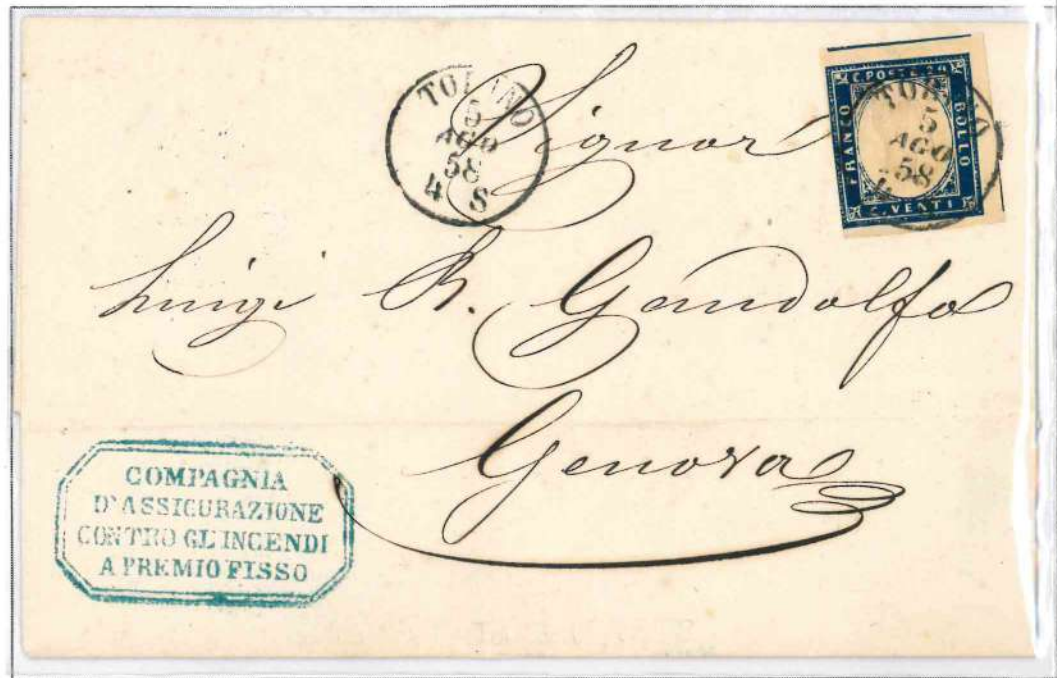 TORINO
5
AGO
58
4 S
C. POSTE 20
FRANCO
BOLLO
C. VENTI
TORINO
5
AGO
58
4
Signor
Luigi B. Gandolfo
Genova
COMPAGNIA
D'ASSICURAZIONE
CONTRO GL'INCENDI
A PREMIO FISSO